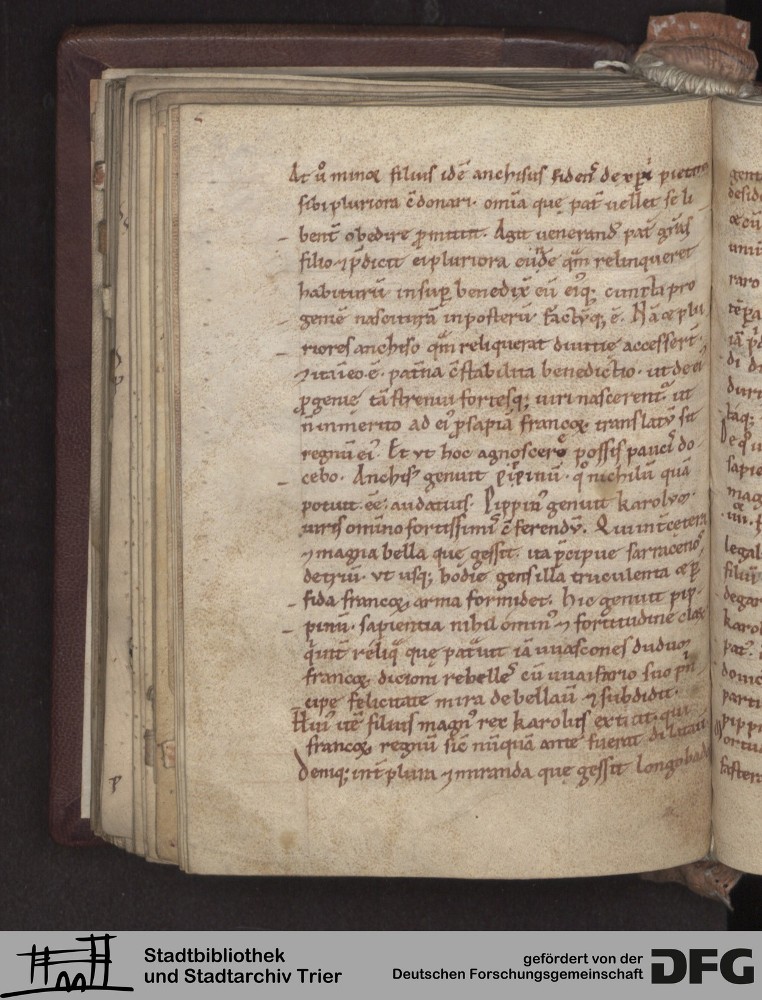 At ů minor filius idē anchisus fidens de xp̄i pietate
sibi pluriora ēdonari. omīa que pat̄ vellet se li
bent̄ obedire promittit. Agit venerand9 pat̄ grās
filio. ⁊ p̄dicit ei pluriora eūde qm̄ relinqueret
habiturū insup benedixit eū eiq; cuncta pro
geniē nasciturā in posterū. factūq; ē. Nā ⁊ plu
riores anchiso qm̄ reliquerat diuitie accesserē.
⁊ ita in eo ē. pat̄na c̄stabilita benedictio. ut de ei9
progenie tā strenui fortesq; uiri nascerent. ut
n̄ inmerito ad ei9 p̄sapiā francoꝝ translatū sit
regnū ei9. Et vt hoc agnoscere possis paucis do
cebo. Anchis9 genuit pipinū. qo nichilū quā
potuit. ēē audatius. Pippin9 genuit karolum.
uiris omīno fortissimis c̄ferendū. Qui int̄ cetera
⁊ magna bella que gessit. ita p̄cipue sarracenos
detriū. vt usq; hodie gens illa truculenta ⁊ p̄
fida francoꝝ arma formidet. hic genuit pip
pinū. sapientia nihilomin9 ⁊ fortitudine clar
q̄ int̄ reliq̄ que patuit iā uuascones dudum
francoꝝ dicioni rebelles cū uuaifario suo p̄n
cipe felicitate mira debellauit ⁊ subdidit.
Hui9 itē filius magn9 rex karolus extitit. qui
francoꝝ regnū sic nūquā ante fuerat dilatau
Deniq; int̄ plura ⁊ miranda que gessit longobad
Stadtbibliothek
und Stadtarchiv Trier
gefördert von der
Deutschen Forschungsgemeinschaft
DFG